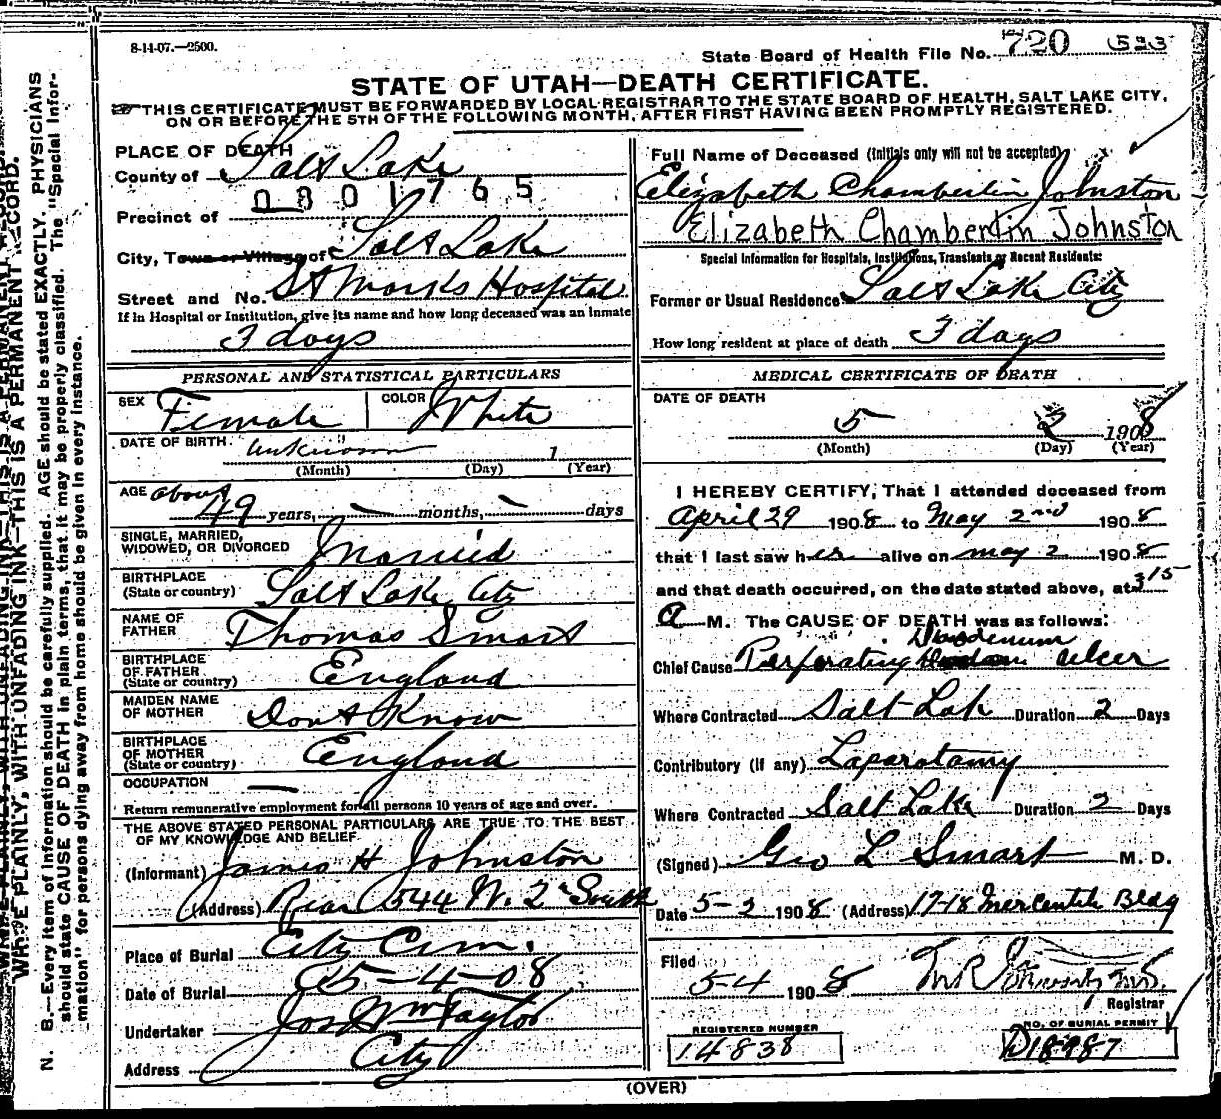 8-14-07.—2500.
State Board of Health File No. 720 523
STATE OF UTAH—DEATH CERTIFICATE.
THIS CERTIFICATE MUST BE FORWARDED BY LOCAL REGISTRAR TO THE STATE BOARD OF HEALTH, SALT LAKE CITY,
ON OR BEFORE THE 5TH OF THE FOLLOWING MONTH, AFTER FIRST HAVING BEEN PROMPTLY REGISTERED.
PLACE OF DEATH
County of Salt Lake
0801765
Precinct of
City, Town or Village of Salt Lake
Street and No. St Marks Hospital
If in Hospital or Institution, give its name and how long deceased was an inmate
3 days
PERSONAL AND STATISTICAL PARTICULARS
SEX Female COLOR White
DATE OF BIRTH unknown 1
(Month) (Day) (Year)
AGE about 49 years, — months, — days
SINGLE, MARRIED,
WIDOWED, OR DIVORCED Married
BIRTHPLACE
(State or country) Salt Lake City
NAME OF
FATHER Thomas Smart
BIRTHPLACE
OF FATHER
(State or country) England
MAIDEN NAME
OF MOTHER Dont Know
BIRTHPLACE
OF MOTHER
(State or country) England
OCCUPATION —
Return remunerative employment for all persons 10 years of age and over.
THE ABOVE STATED PERSONAL PARTICULARS ARE TRUE TO THE BEST
OF MY KNOWLEDGE AND BELIEF.
(Informant) James H Johnston
(Address) Rear 544 W. 2d South
Place of Burial City Cem.
Date of Burial 5-4-08
Undertaker Jos Wm Taylor
Address City
Full Name of Deceased (Initials only will not be accepted)
Elizabeth Chamberlin Johnston
Elizabeth Chambertin Johnston
Special Information for Hospitals, Institutions, Transients or Recent Residents:
Former or Usual Residence Salt Lake City
How long resident at place of death 3 days
MEDICAL CERTIFICATE OF DEATH
DATE OF DEATH
5 2 1908
(Month) (Day) (Year)
I HEREBY CERTIFY, That I attended deceased from
April 29 1908 to May 2nd 1908
that I last saw her alive on May 2 1908
and that death occurred, on the date stated above, at 3 15
A M. The CAUSE OF DEATH was as follows:
Duodenum
Chief Cause Perforating ulcer
Where Contracted Salt Lak Duration 2 Days
Contributory (if any) Laparotamy
Where Contracted Salt Lake Duration 2 Days
(Signed) Geo L Smart M. D.
Date 5-2 1908 (Address) 17-18 Mercantile Bldg
Filed
5-4 1908
Registrar
REGISTERED NUMBER
14838
NO. OF BURIAL PERMIT
D18987
(OVER)
WRITE PLAINLY, WITH UNFADING INK—THIS IS A PERMANENT RECORD.
N. B.—Every item of information should be carefully supplied. AGE should be stated EXACTLY. PHYSICIANS
should state CAUSE OF DEATH in plain terms, that it may be properly classified. The "Special Infor-
mation" for persons dying away from home should be given in every instance.